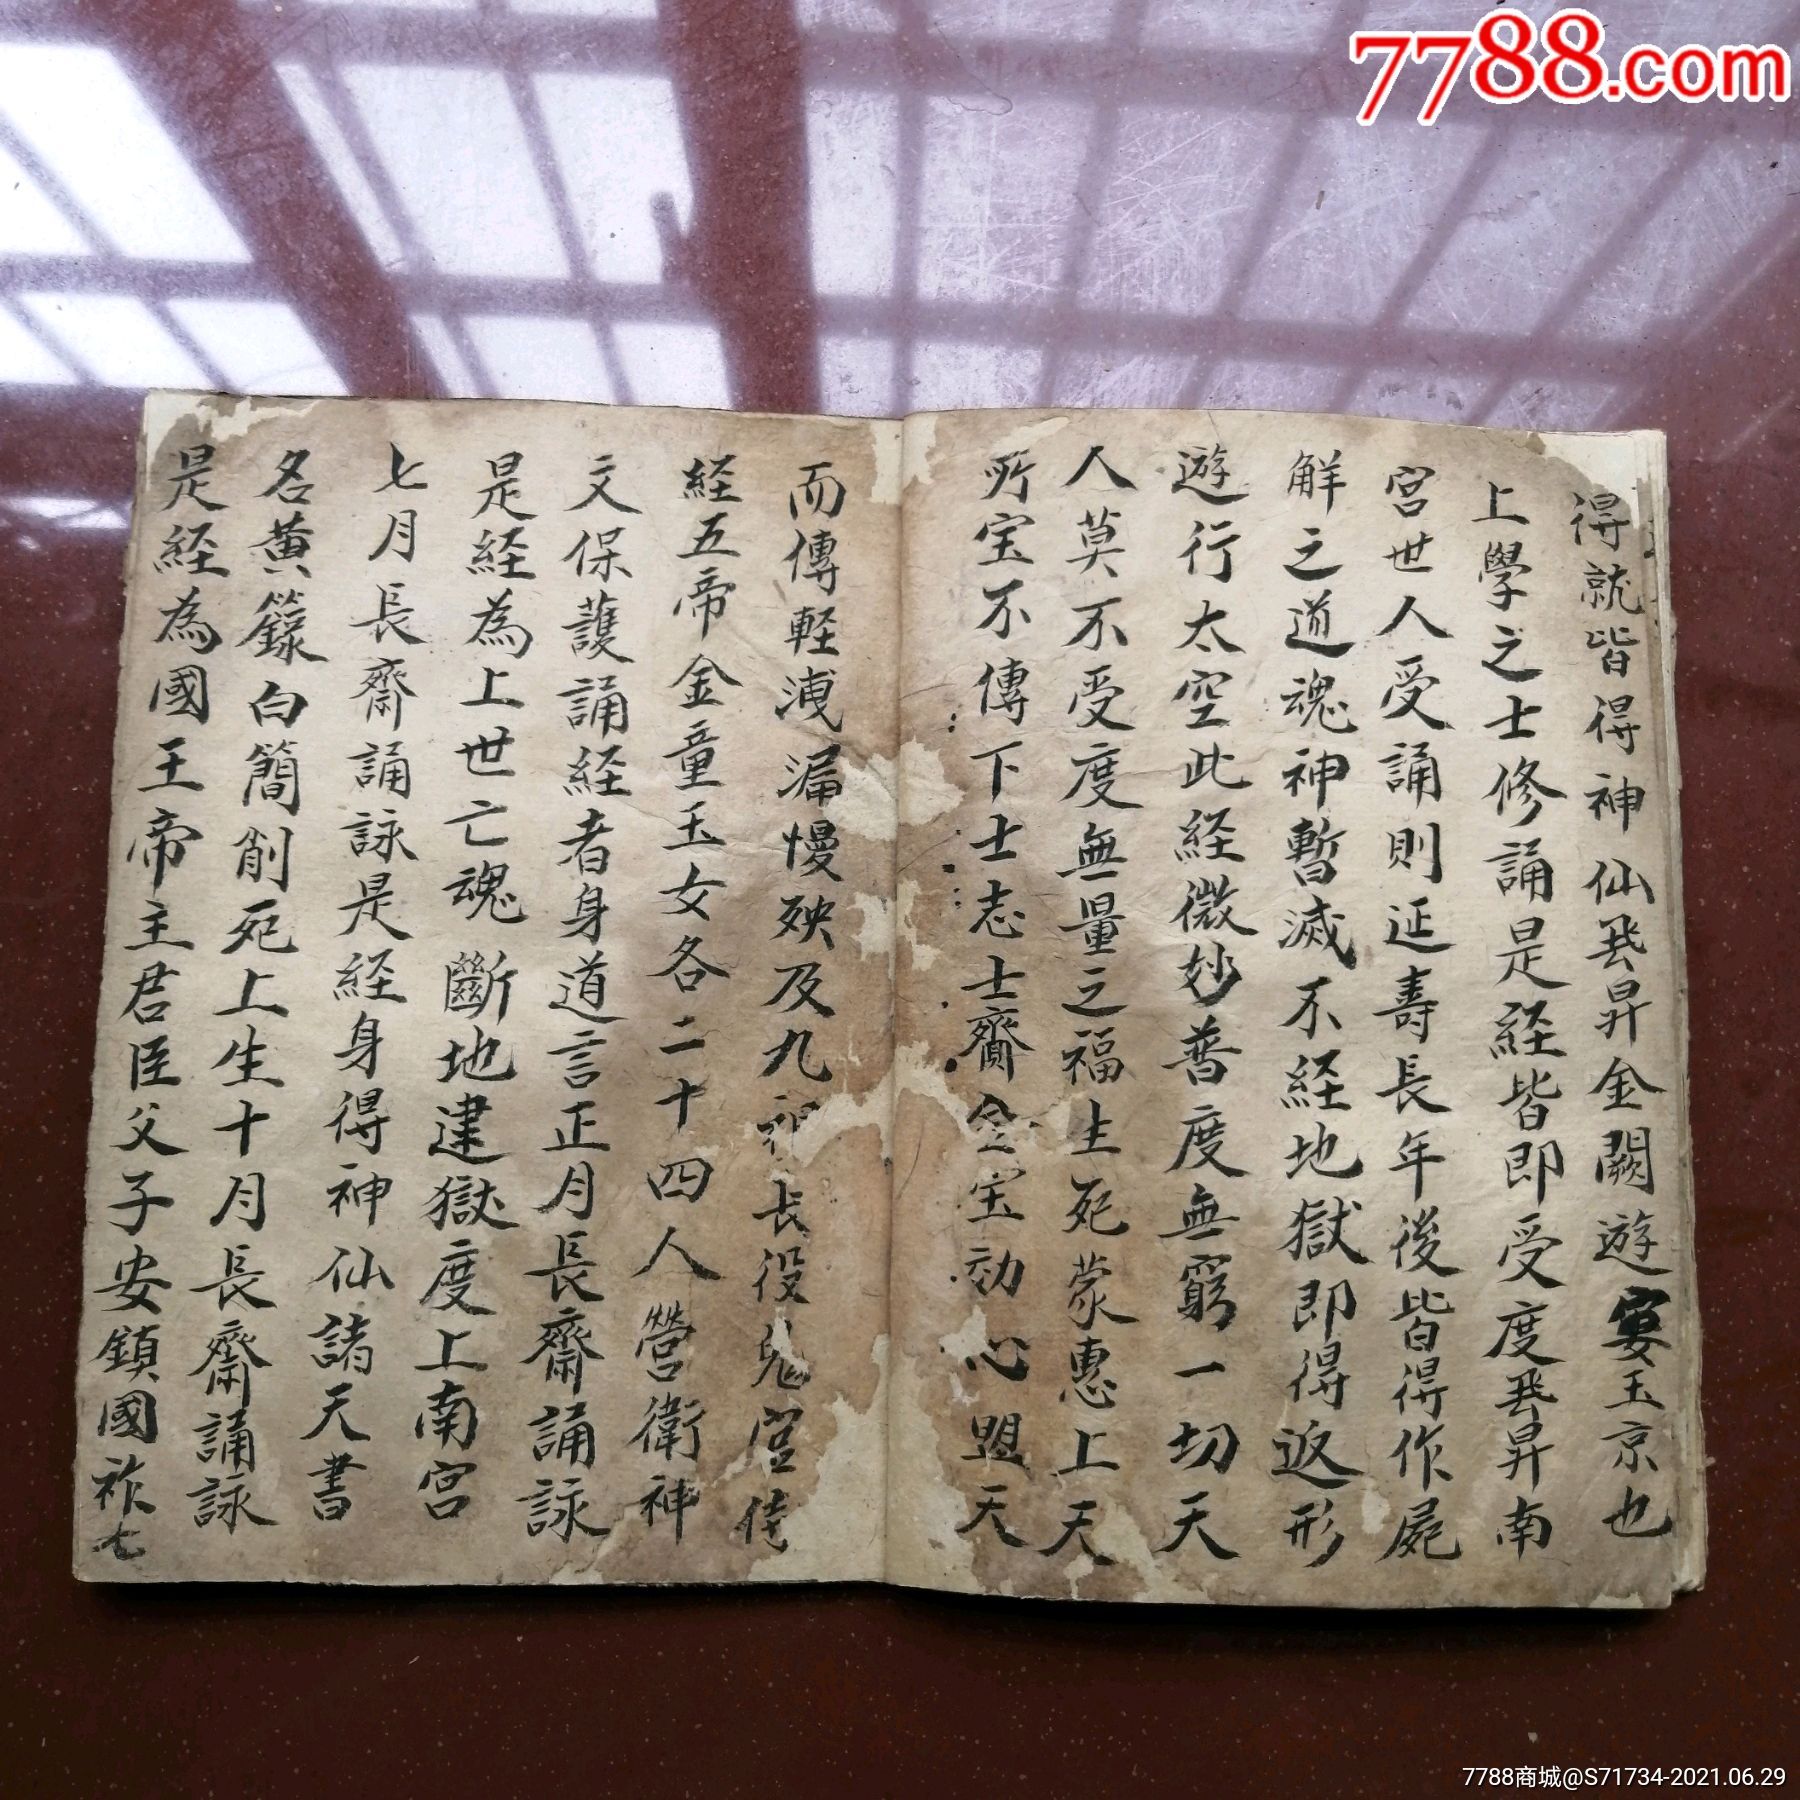 7788.com
得就皆得神仙飛昇金闕遊宴玉京也
上學之士修誦是経皆即受度飛昇南
宮世人受誦則延壽長年後皆得作屍
解之道魂神暫滅不経地獄即得返形
遊行太空此経微妙普度無窮一切天
人莫不受度無量之福生死蒙惠上天
所宝不傳下士志士齎金宝効心盟天
而傳軽洩漏慢殃及九祖長役鬼官侍
経五帝金童玉女各二十四人營衛神
文保護誦経者身道言正月長齋誦詠
是経為上世亡魂斷地建獄度上南宮
七月長齋誦詠是経身得神仙諸天書
名黄籙白簡削死上生十月長齋誦詠
是経為國王帝主君臣父子安鎮國祚七
7788商城@S71734-2021.06.29